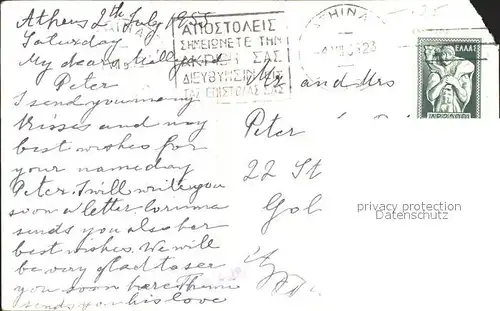 Athens 2th July 1955
Saturday
My dear
Peter
I send you many
kisses and my
best wishes for
your nameday
Peter. I will write you
soon a letter. Corinna
sends you also her
best wishes. We will
be very glad to see
you soon here. Themi
sends you his love
ΑΠΟΣΤΟΛΕΙΣ
ΣΗΜΕΙΩΝΕΤΕ ΤΗΝ
ΑΚΡΙΒΗ ΣΑΣ
ΔΙΕΥΘΥΝΣΙΝ
ΣΑΣ
ΑΘΗΝΑΙ
ΕΛΛΑΣ
Mr and Mrs
Peter
22 St
Gol
privacy protection
Datenschutz